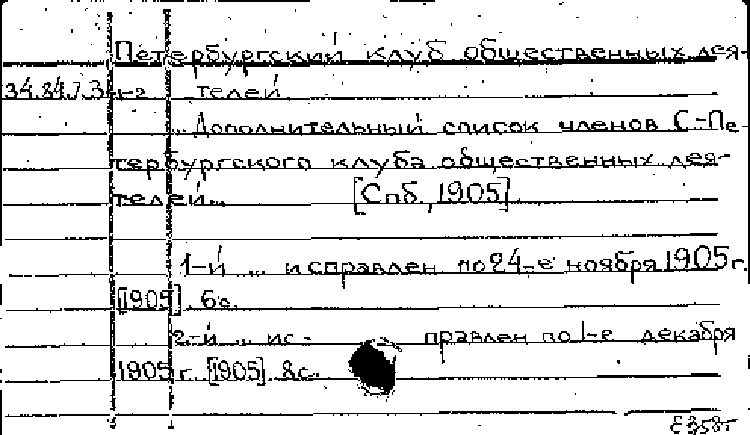 Петербургский клуб общественных дея-
34.84.7.3 телей
... Дополнительный список членов С.-Пе
тербургского клуба общественных дея-
телей... [Спб., 1905]
1-й ... исправлен по 24-е ноября 1905 г.
[1905]. 6с.
2-й ... ис- правлен по 1-е декабря
1905 г. [1905]. 8с.